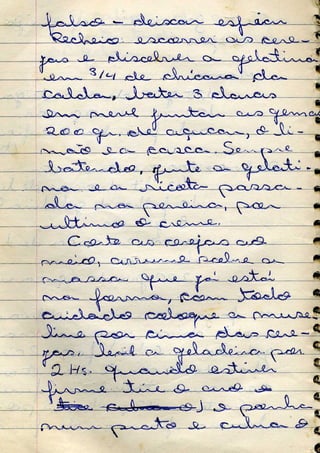 falso - deixar esfriar
Recheio: escorrer as cere-
jas e dissolver a gelatina
em 3/4 de chícara da
calda, bater 3 claras
em neve juntar as gemas
200 gr. de açucar, o li-
mão e a casca. Sempre
batendo, junte a gelati-
na e a ricota passa-
da na peneira, por
ultimo o creme.
Corte as cerejas ao
meio, arrume sobre a
massa que já está
na forma, com todo
cuidado coloque a musse
line por cima das cere-
jas. leve a geladeira por
2 Hs. quando estiver
firme tire o aro e
o) e ponha
num prato e cubra o